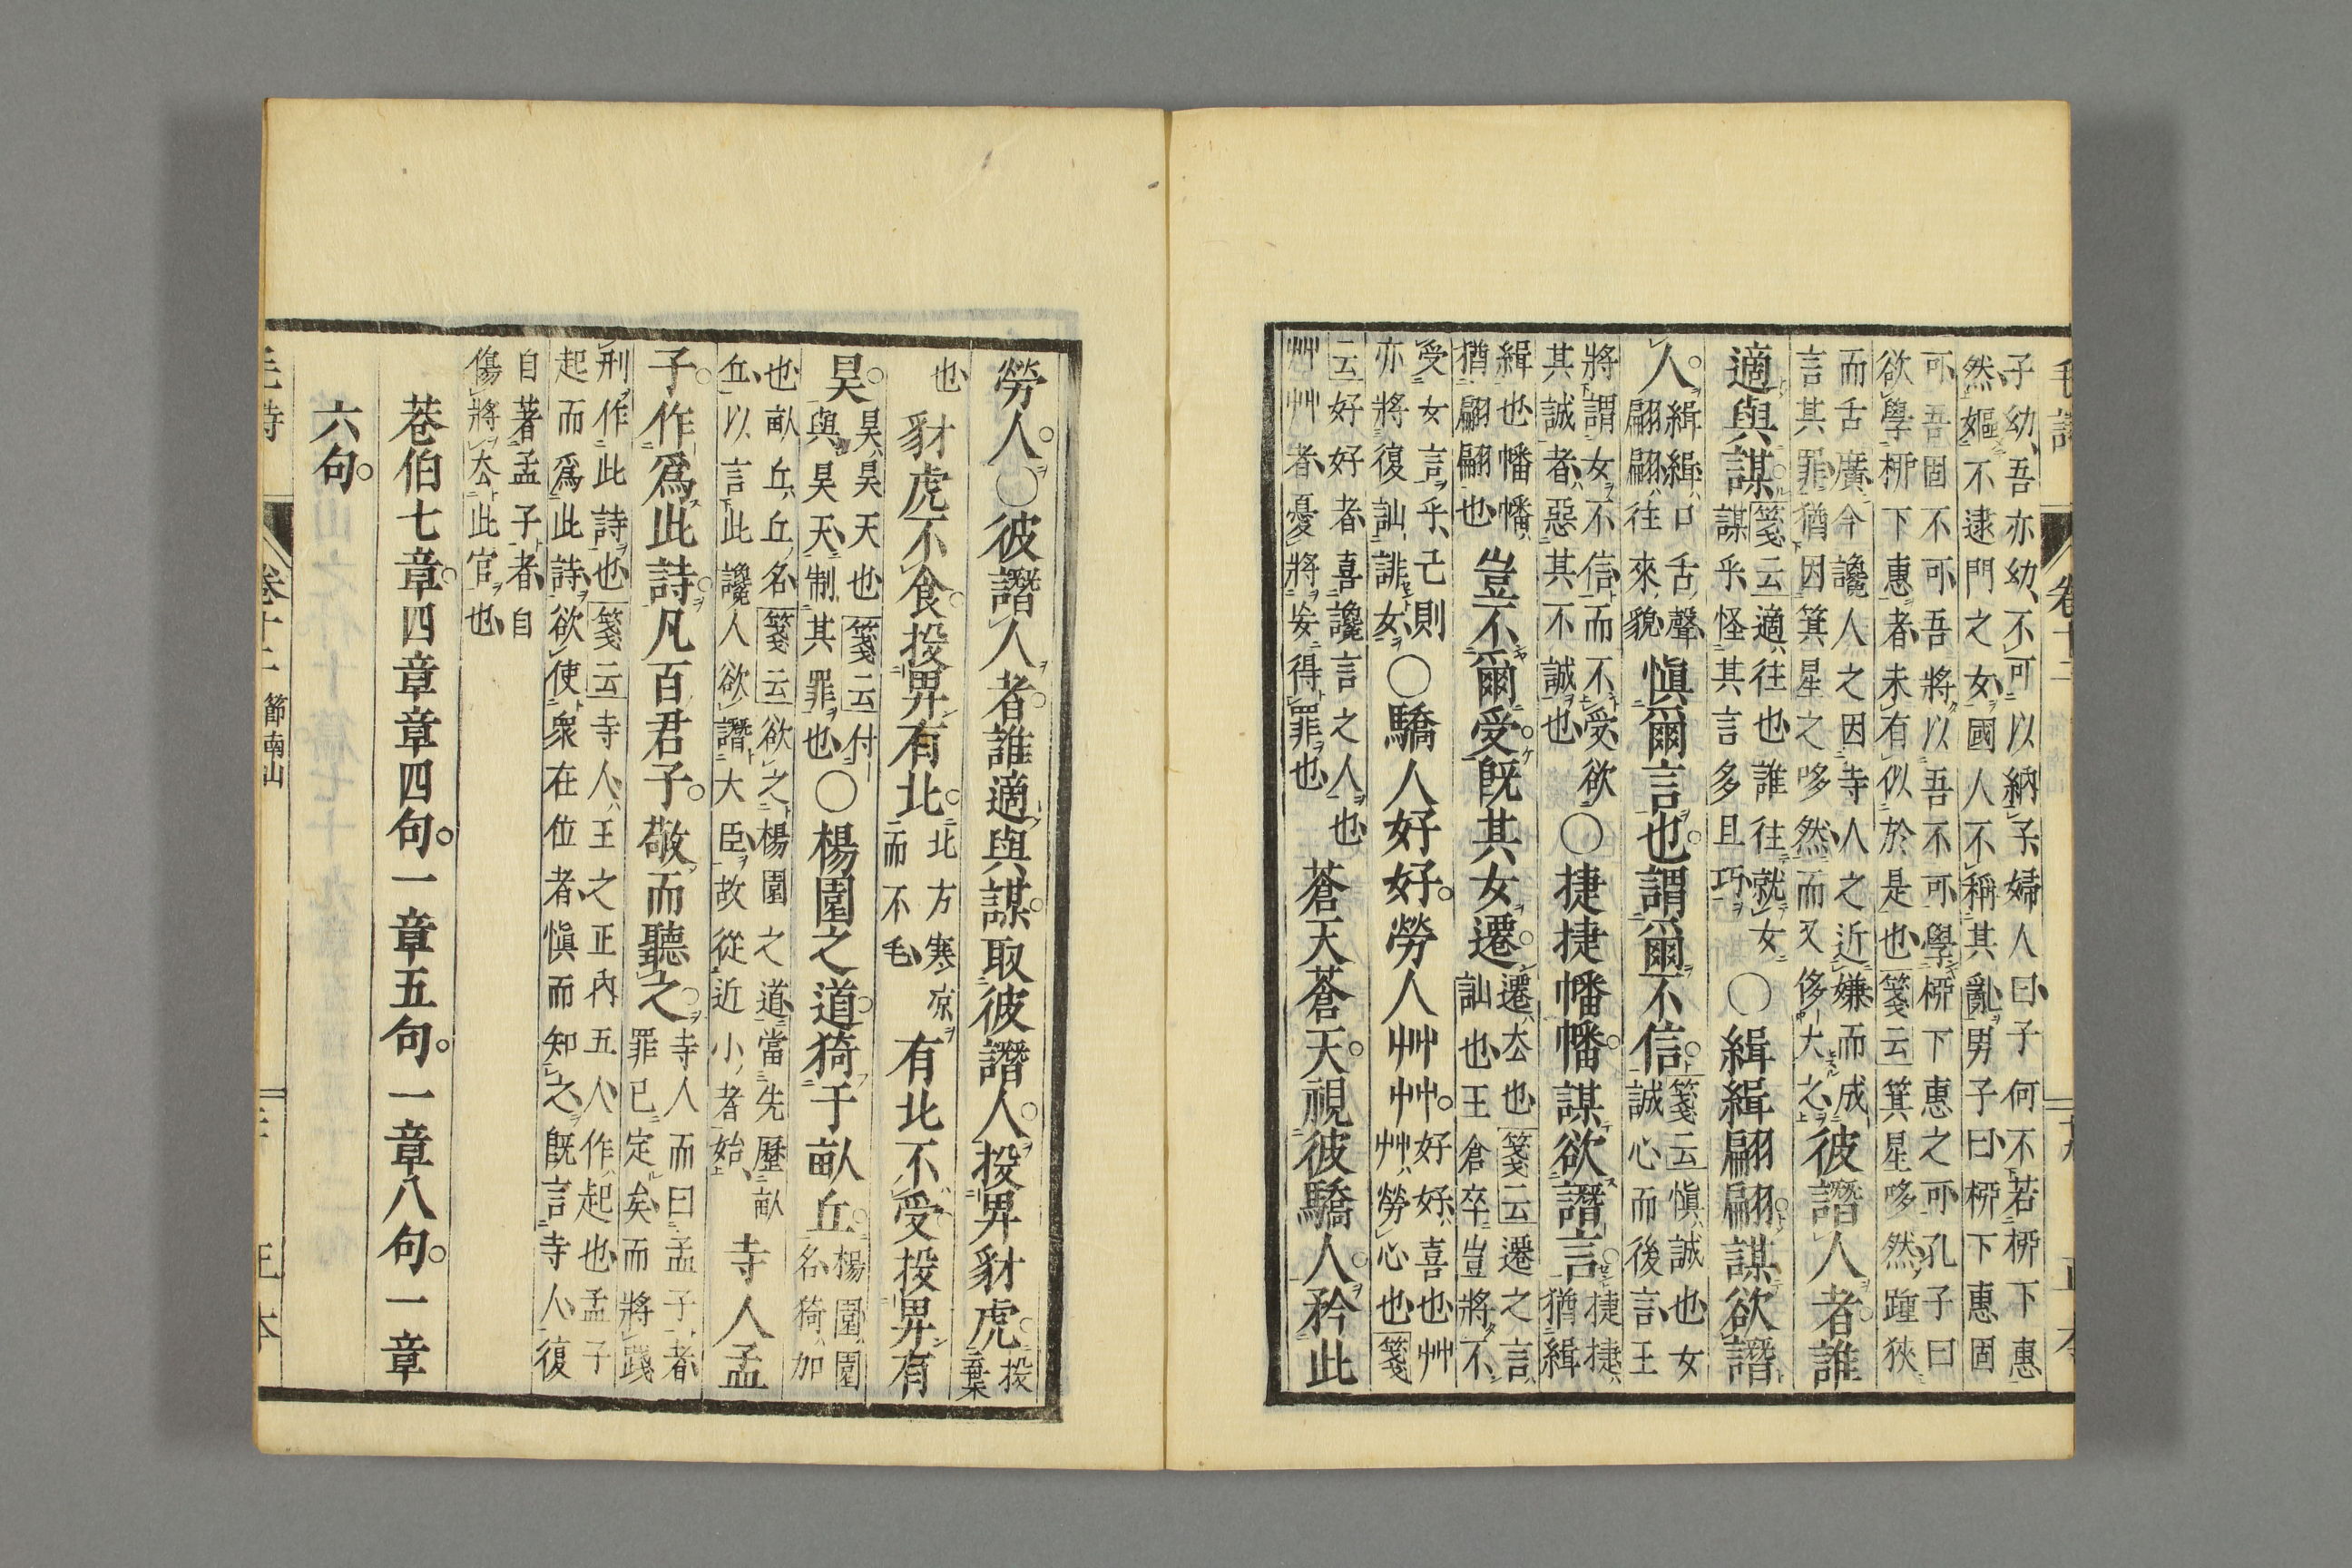 毛詩 卷十二
子幼吾亦幼不可以納子婦人曰子何不若栁下惠
然嫗不逮門之女國人不稱其亂男子曰栁下惠固
可吾固不可吾將以吾不可學栁下惠之可孔子曰
欲學栁下惠者未有似於是也箋云箕星哆然踵狹
而舌廣今讒人之因寺人之近嫌而成
言其罪猶因箕星之哆然而又侈大之
彼譖人者誰
適與謀
箋云適往也誰往就女
謀乎怪其言多且巧
○緝緝翩翩謀欲譖
人
緝緝口舌聲
翩翩往來貌
愼爾言也謂爾不信
箋云愼誠也女
誠心而後言王
將謂女不信而不受欲
其誠者惡其不誠也
○捷捷幡幡謀欲譖言
捷捷
猶緝
緝也幡幡
猶翩翩也
豈不爾受旣其女遷
遷去也箋云遷之言
訕也王倉卒豈將不
受女言乎已則
亦將復訕誹女
○驕人好好勞人艸艸
好好喜也艸
艸勞心也箋
云好好者喜讒言之人也
艸艸者憂將妄得罪也
蒼天蒼天視彼驕人矜此
勞人○彼譖人者誰適與謀取彼譖人投畀豺虎
投
棄
也
豺虎不食投畀有北
北方寒凉
而不毛
有北不受投畀有
昊
昊昊天也箋云付
與昊天制其罪也
○楊園之道猗于畝丘
楊園園
名猗加
也畝丘丘名箋云欲之楊園之道當先歷畝
丘以言此讒人欲譖大臣故從近小者始
寺人孟
子作爲此詩凡百君子敬而聽之
寺人而曰孟子者
罪已定矣而將踐
刑作此詩也箋云寺人王之正內五人作起也孟子
起而爲此詩欲使衆在位者愼而知之旣言寺人復
自著孟子者自
傷將去此官也
巷伯七章四章章四句一章五句一章八句一章
六句
毛詩 卷十二 節南山